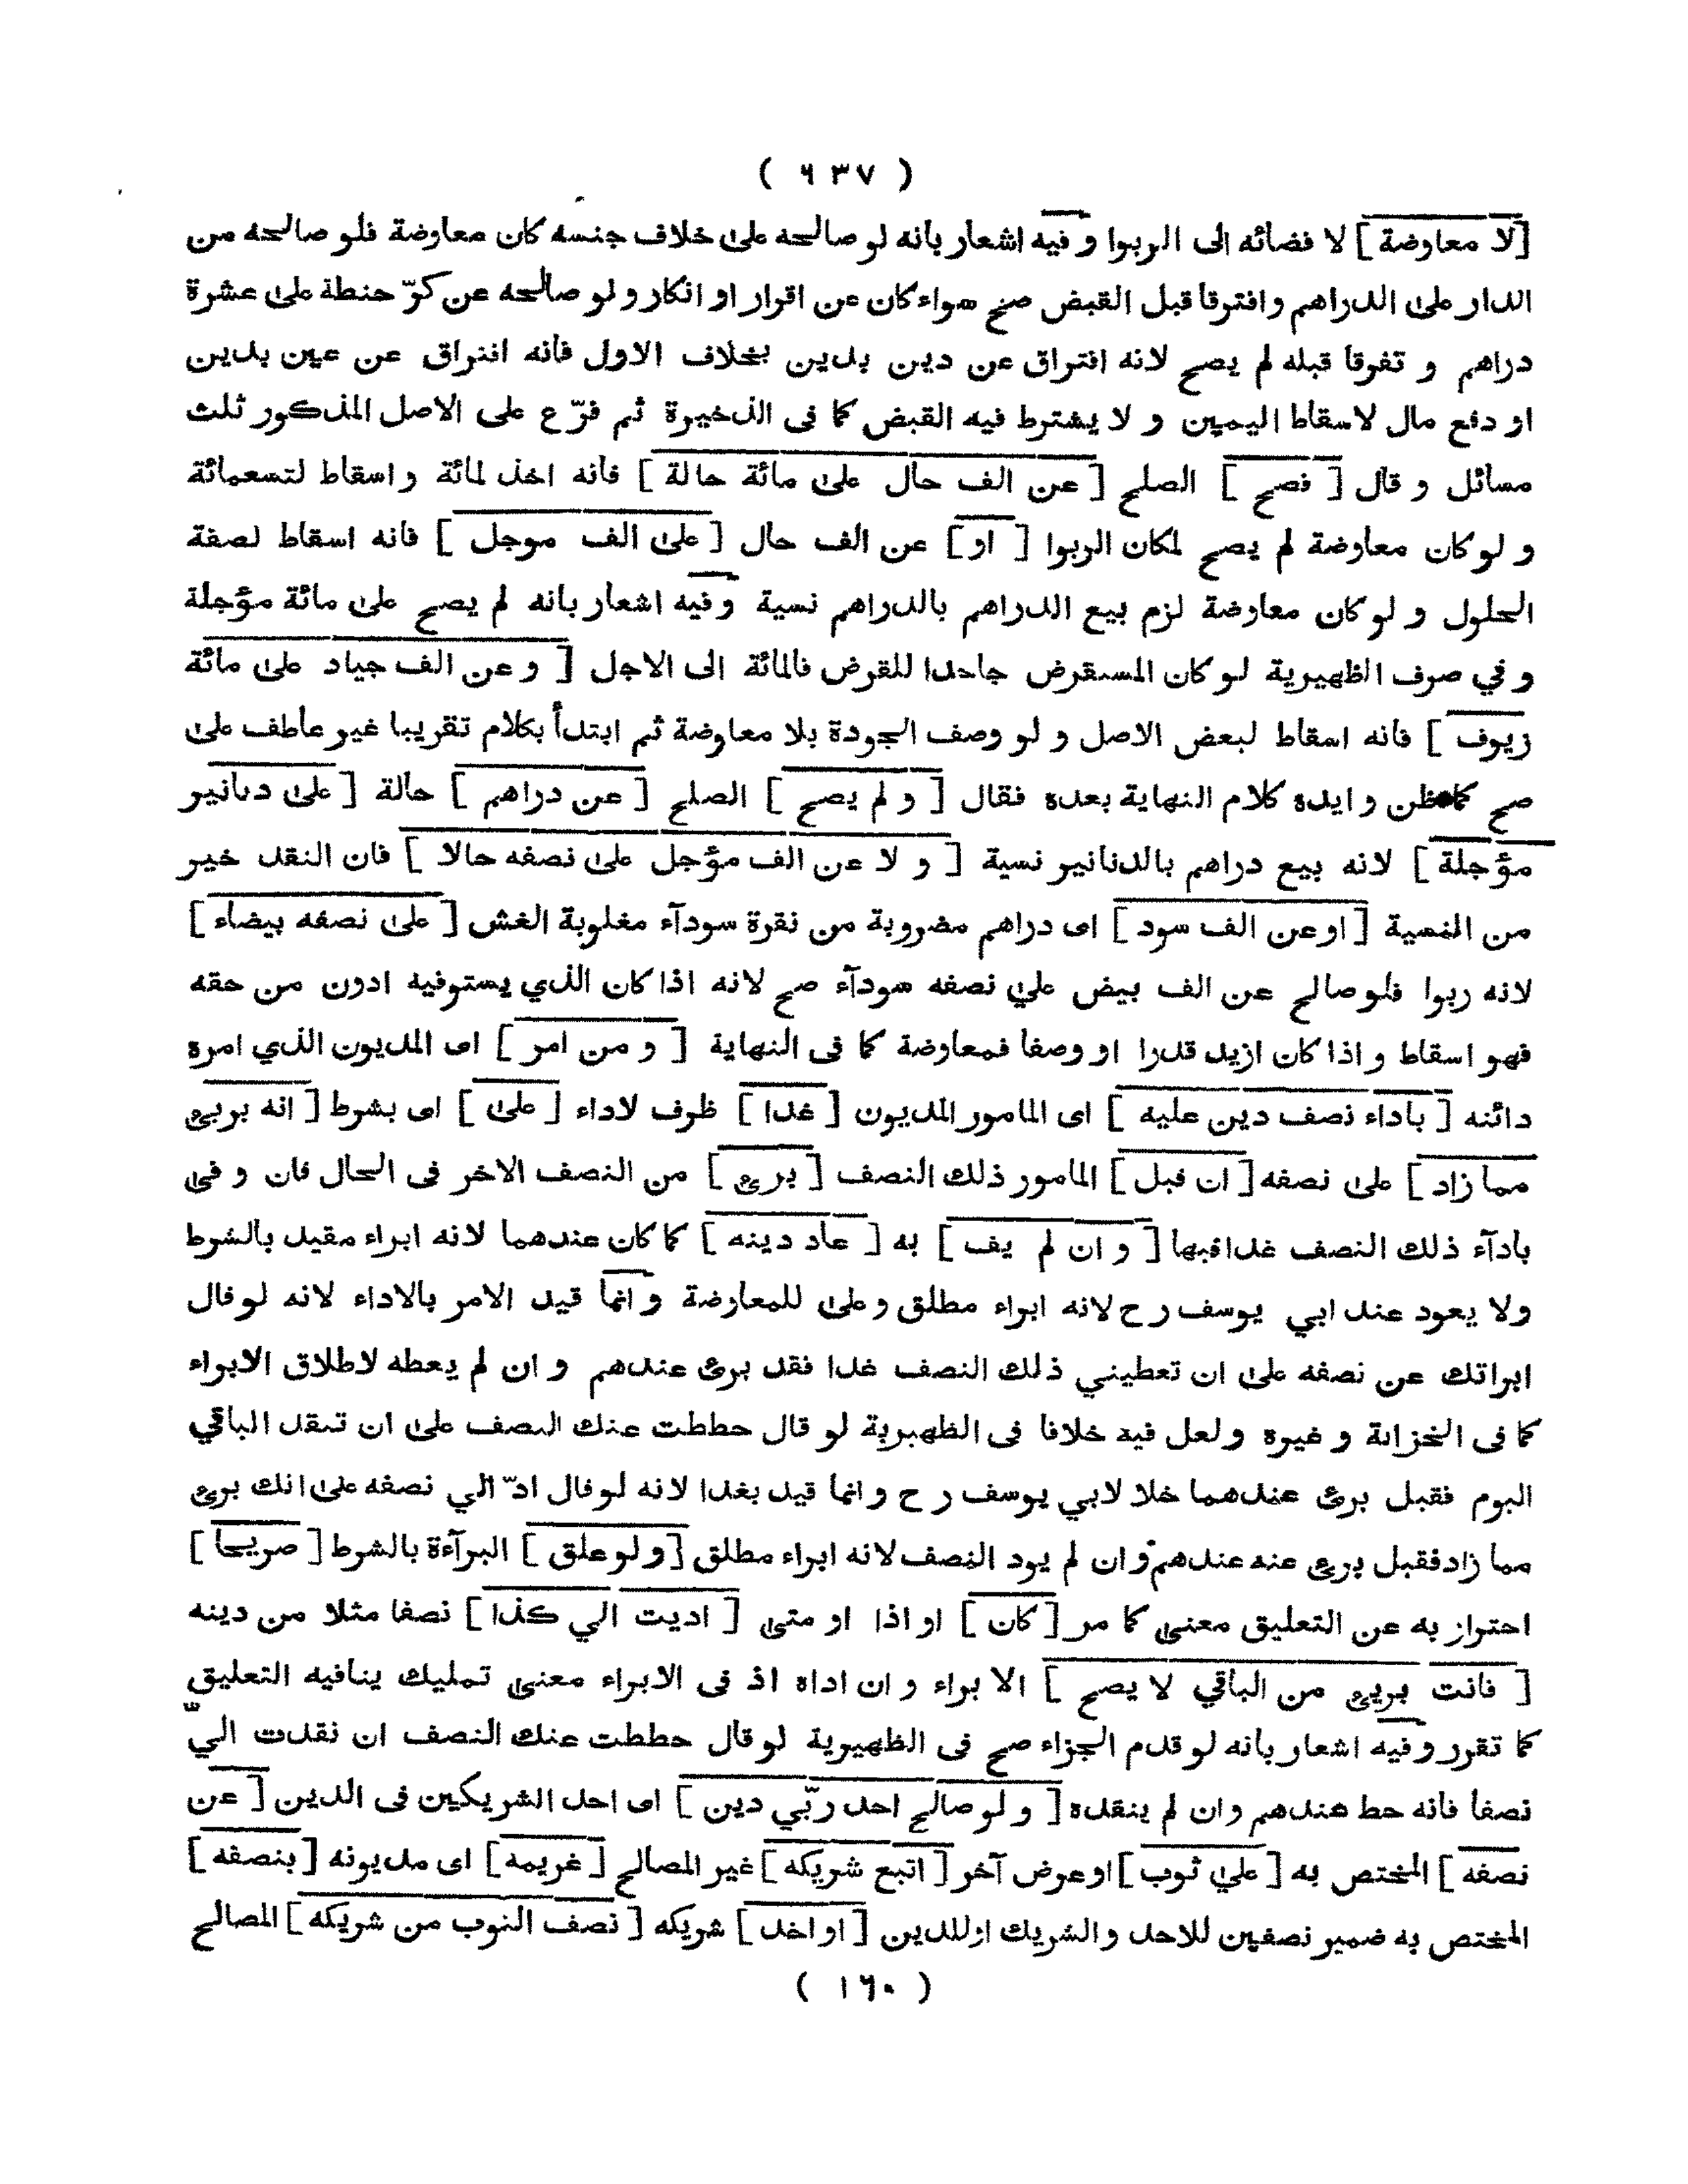 ( ٦٣٧ )
[لا معاوضة] لا فضائه الى الربوا وفيه اشعار بانه لو صالحه على خلاف جنسه كان معاوضة فلو صالحه من
الدار على الدراهم وافترقا قبل القبض صح سواء كان عن اقرار او انكار و لو صالحه عن كرّ حنطة على عشرة
دراهم و تفرقا قبله لم يصح لانه افتراق عن دين بدين بخلاف الاول فانه افتراق عن عين بدين
او دفع مال لاسقاط اليمين و لا يشترط فيه القبض كما فى الذخيرة ثم فرّع على الاصل المذكور ثلث
مسائل و قال [ فصح ] الصلح [ عن الف حال على مائة حالة ] فانه اخذ لمائة و اسقاط لتسعمائة
و لو كان معاوضة لم يصح لمكان الربوا [ او ] عن الف حال [ على الف موجل ] فانه اسقاط لصفة
الحلول و لو كان معاوضة لزم بيع الدراهم بالدراهم نسية وفيه اشعار بانه لم يصح على مائة مؤجلة
و في صرف الظهيرية لو كان المستقرض جاحدا للقرض فالمائة الى الاجل [ و عن الف جياد على مائة
زيوف ] فانه اسقاط لبعض الاصل و لو وصف الجودة بلا معاوضة ثم ابتدأ بكلام تقريبا غير عاطف على
صح كما ظن و ايده كلام النهاية بعده فقال [ و لم يصح ] الصلح [ عن دراهم ] حالة [ على دنانير
مؤجلة ] لانه بيع دراهم بالدنانير نسية [ و لا عن الف مؤجل على نصفه حالا ] فان النقد خير
من النسية [ او عن الف سود ] اى دراهم مضروبة من نقرة سودآء مغلوبة الغش [ على نصفه بيضاء ]
لانه ربوا فلو صالح عن الف بيض علي نصفه سودآء صح لانه اذا كان الذي يستوفيه ادون من حقه
فهو اسقاط و اذا كان ازيد قدرا او وصفا فمعاوضة كما فى النهاية [ و من امر ] اى المديون الذي امره
دائنه [ باداء نصف دين عليه ] اى المامور المديون [ غدا ] ظرف لاداء [ على ] اى بشرط [ انه برىء
مما زاد ] على نصفه [ ان قبل ] المامور ذلك النصف [ برىء ] من النصف الاخر فى الحال فان و فى
بادآء ذلك النصف غدا فبها [ و ان لم يف ] به [ عاد دينه ] كما كان عندهما لانه ابراء مقيد بالشرط
ولا يعود عند ابي يوسف رح لانه ابراء مطلق و على للمعارضة وانما قيد الامر بالاداء لانه لو قال
ابراتك عن نصفه على ان تعطيني ذلك النصف غدا فقد برىء عندهم و ان لم يعطه لاطلاق الابراء
كما فى الخزانة و غيره و لعل فيه خلافا فى الظهيرية لو قال حططت عنك النصف على ان تنقد الباقي
اليوم فقبل برىء عندهما خلا لابي يوسف رح و انما قيد بغدا لانه لو قال ادّ الي نصفه على انك برىء
مما زاد فقبل برىء عنه عندهم و ان لم يود النصف لانه ابراء مطلق [ و لو علق ] البرآءة بالشرط [ صريحا ]
احتراز به عن التعليق معنى كما مر [ كان ] او اذا او متى [ اديت الي كذا ] نصفا مثلا من دينه
[ فانت برىء من الباقي لا يصح ] الا براء و ان اداه اذ فى الابراء معنى تمليك ينافيه التعليق
كما تقرر وفيه اشعار بانه لو قدم الجزاء صح فى الظهيرية لو قال حططت عنك النصف ان نقدت اليّ
نصفا فانه حط عندهم و ان لم ينقده [ و لو صالح احد ربّي دين ] اى احد الشريكين فى الدين [ عن
نصفه ] المختص به [ علي ثوب ] او عرض آخر [ اتبع شريكه ] غير المصالح [ غريمه ] اى مديونه [ بنصفه ]
المختص به ضمير نصفين للاحد و الشريك او للدين [ او اخذ ] شريكه [ نصف الثوب من شريكه ] المصالح
( ١٦٠ )